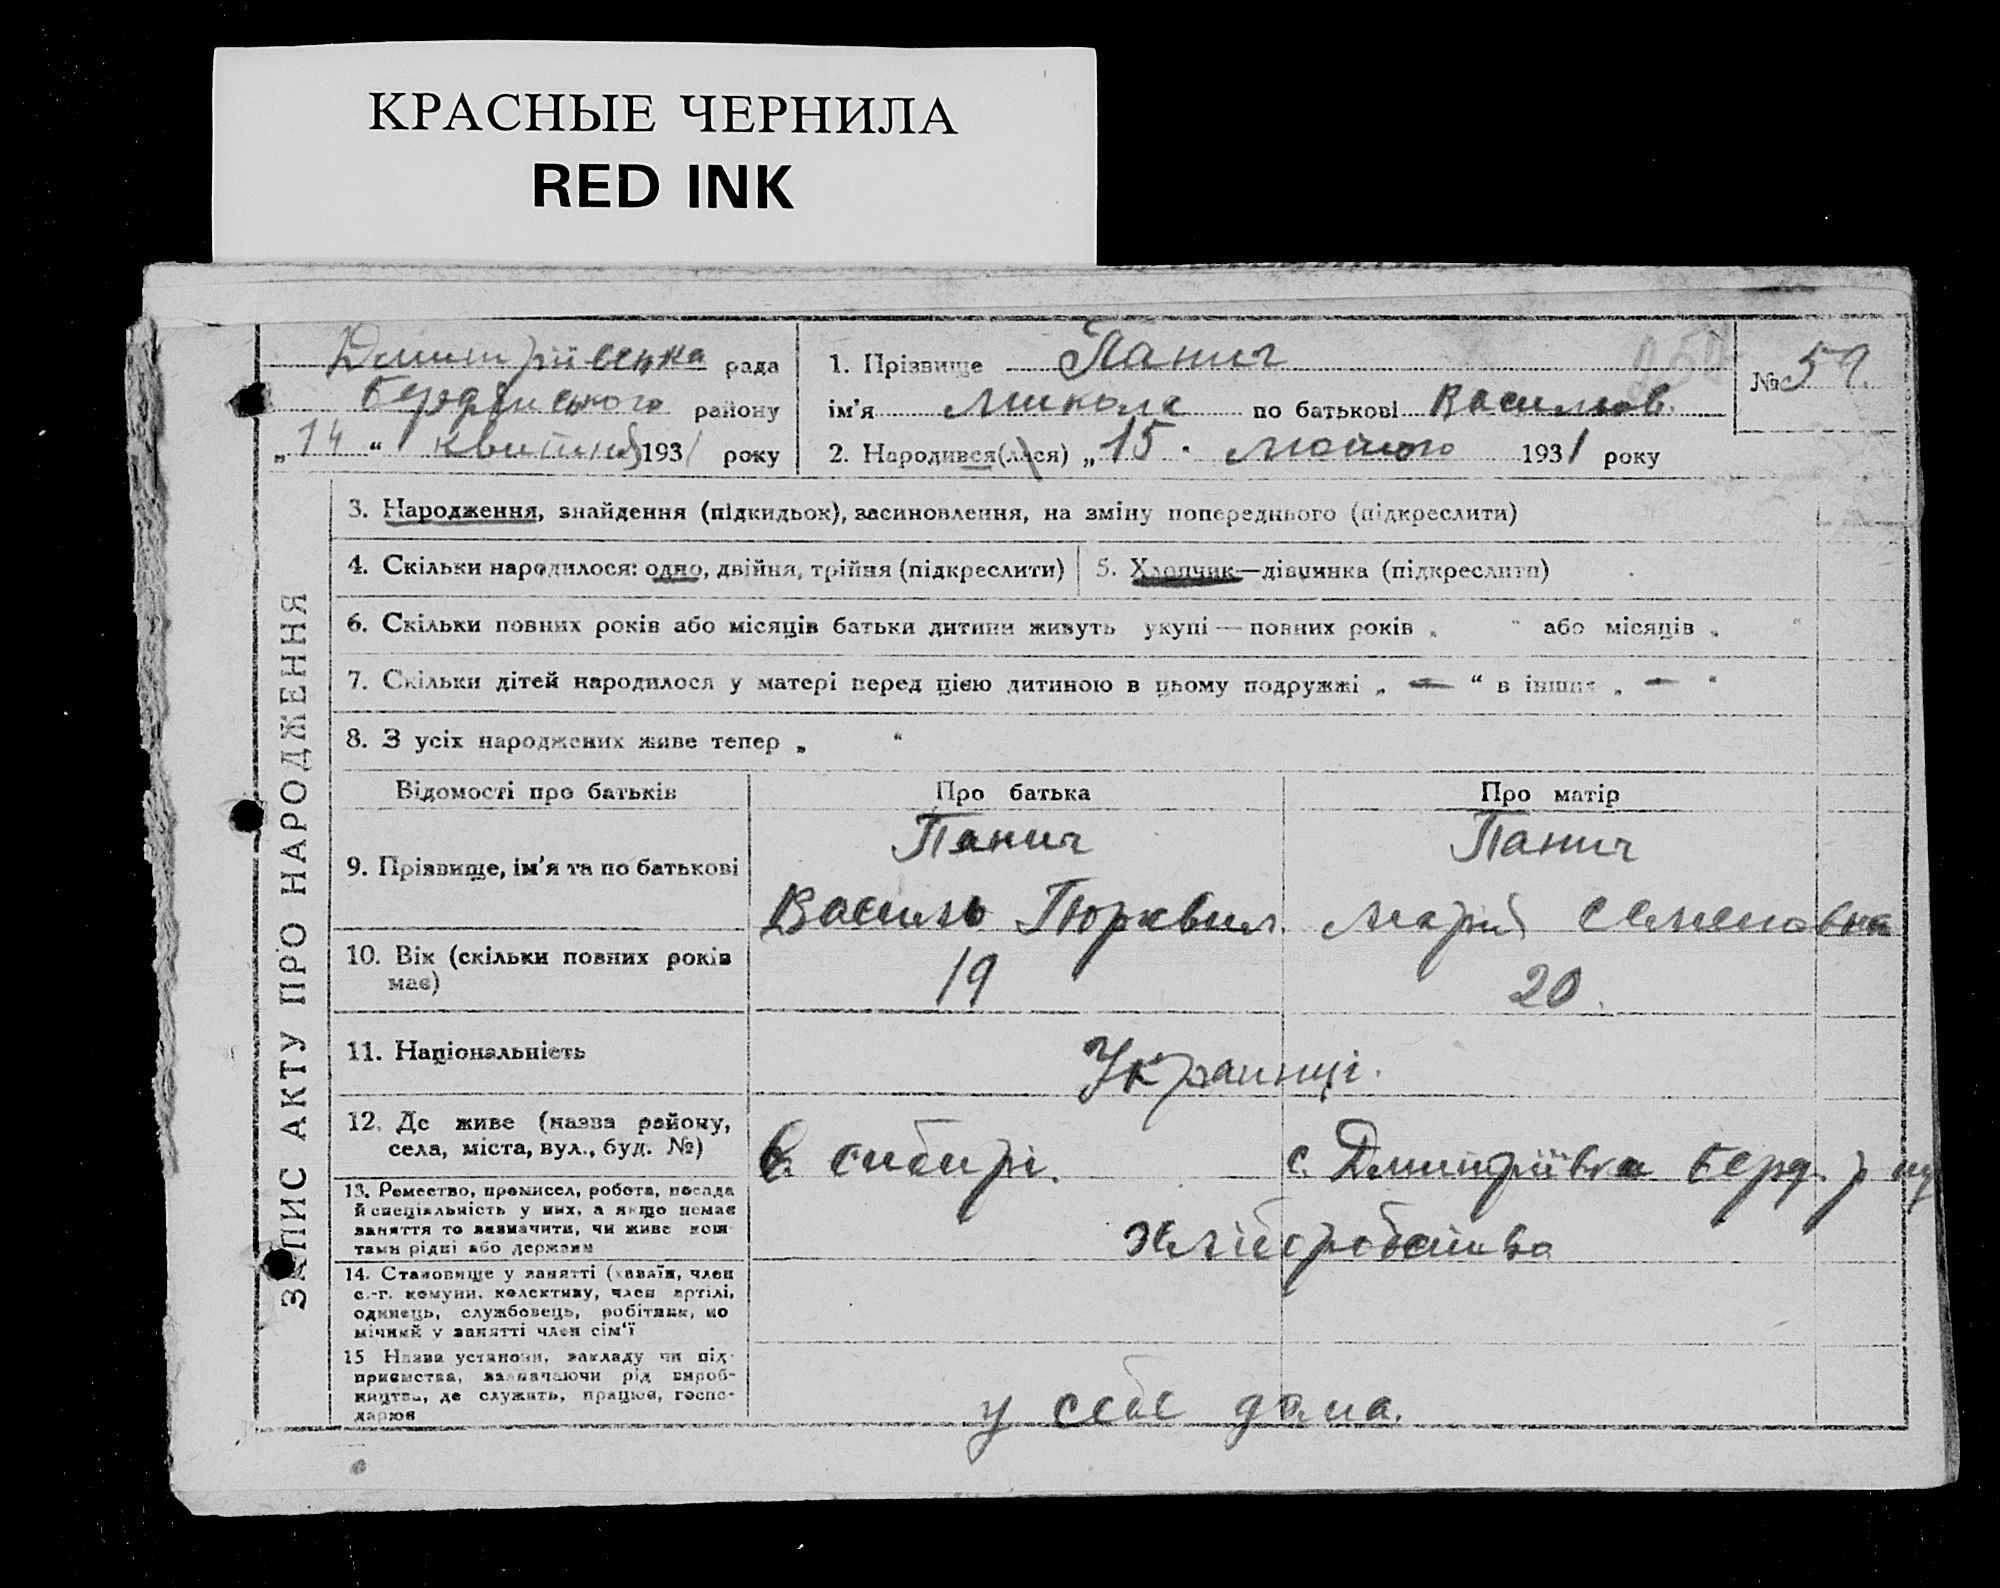 КРАСНЫЕ ЧЕРНИЛА
RED INK
Дмитріівська рада
Бердянського району
„14“ квітня 1931 року
1. Прізвище Панич
ім'я Микола по батькові Василов.
2. Народився(лася) „15. лютого 1931 року
№ 59.
ЗАПИС АКТУ ПРО НАРОДЖЕННЯ
3. Народження, знайдення (підкидьок), засиновлення, на зміну попереднього (підкреслити)
4. Скільки народилося: одно, двійня, трійня (підкреслити)
5. Хлопчик—дівчинка (підкреслити)
6. Скільки повних років або місяців батьки дитини живуть укупі — повних років „ “ або місяців „ “
7. Скільки дітей народилося у матері перед цією дитиною в цьому подружжі „ — “ в інших „ — “
8. З усіх народжених живе тепер „ “
Відомості про батьків
Про батька
Про матір
9. Прізвище, ім'я та по батькові
Панич
Василь
Панич
Марія Семеновна
10. Вік (скільки повних років
має)
19
20.
11. Національність
Украинці.
12. Де живе (назва району,
села, міста, вул., буд. №)
в сибирі.
с. Дмитріівка Берд. р
13. Ремество, промисел, робота, посада
й спеціяльність у них, а якщо немає
заняття то зазначити, чи живе кош-
тами рідні або держави
хліборобства
14. Становище у занятті (хазяїн, член
с.-г. комуни, колективу, член артілі,
одинець, службовець, робітник, по
мічний у занятті член сім'ї
15 Назва установи, закладу чи під-
приємства, зазначаючи рід вироб-
ництва, де служить, працює, госпо-
дарює
у себе дома.